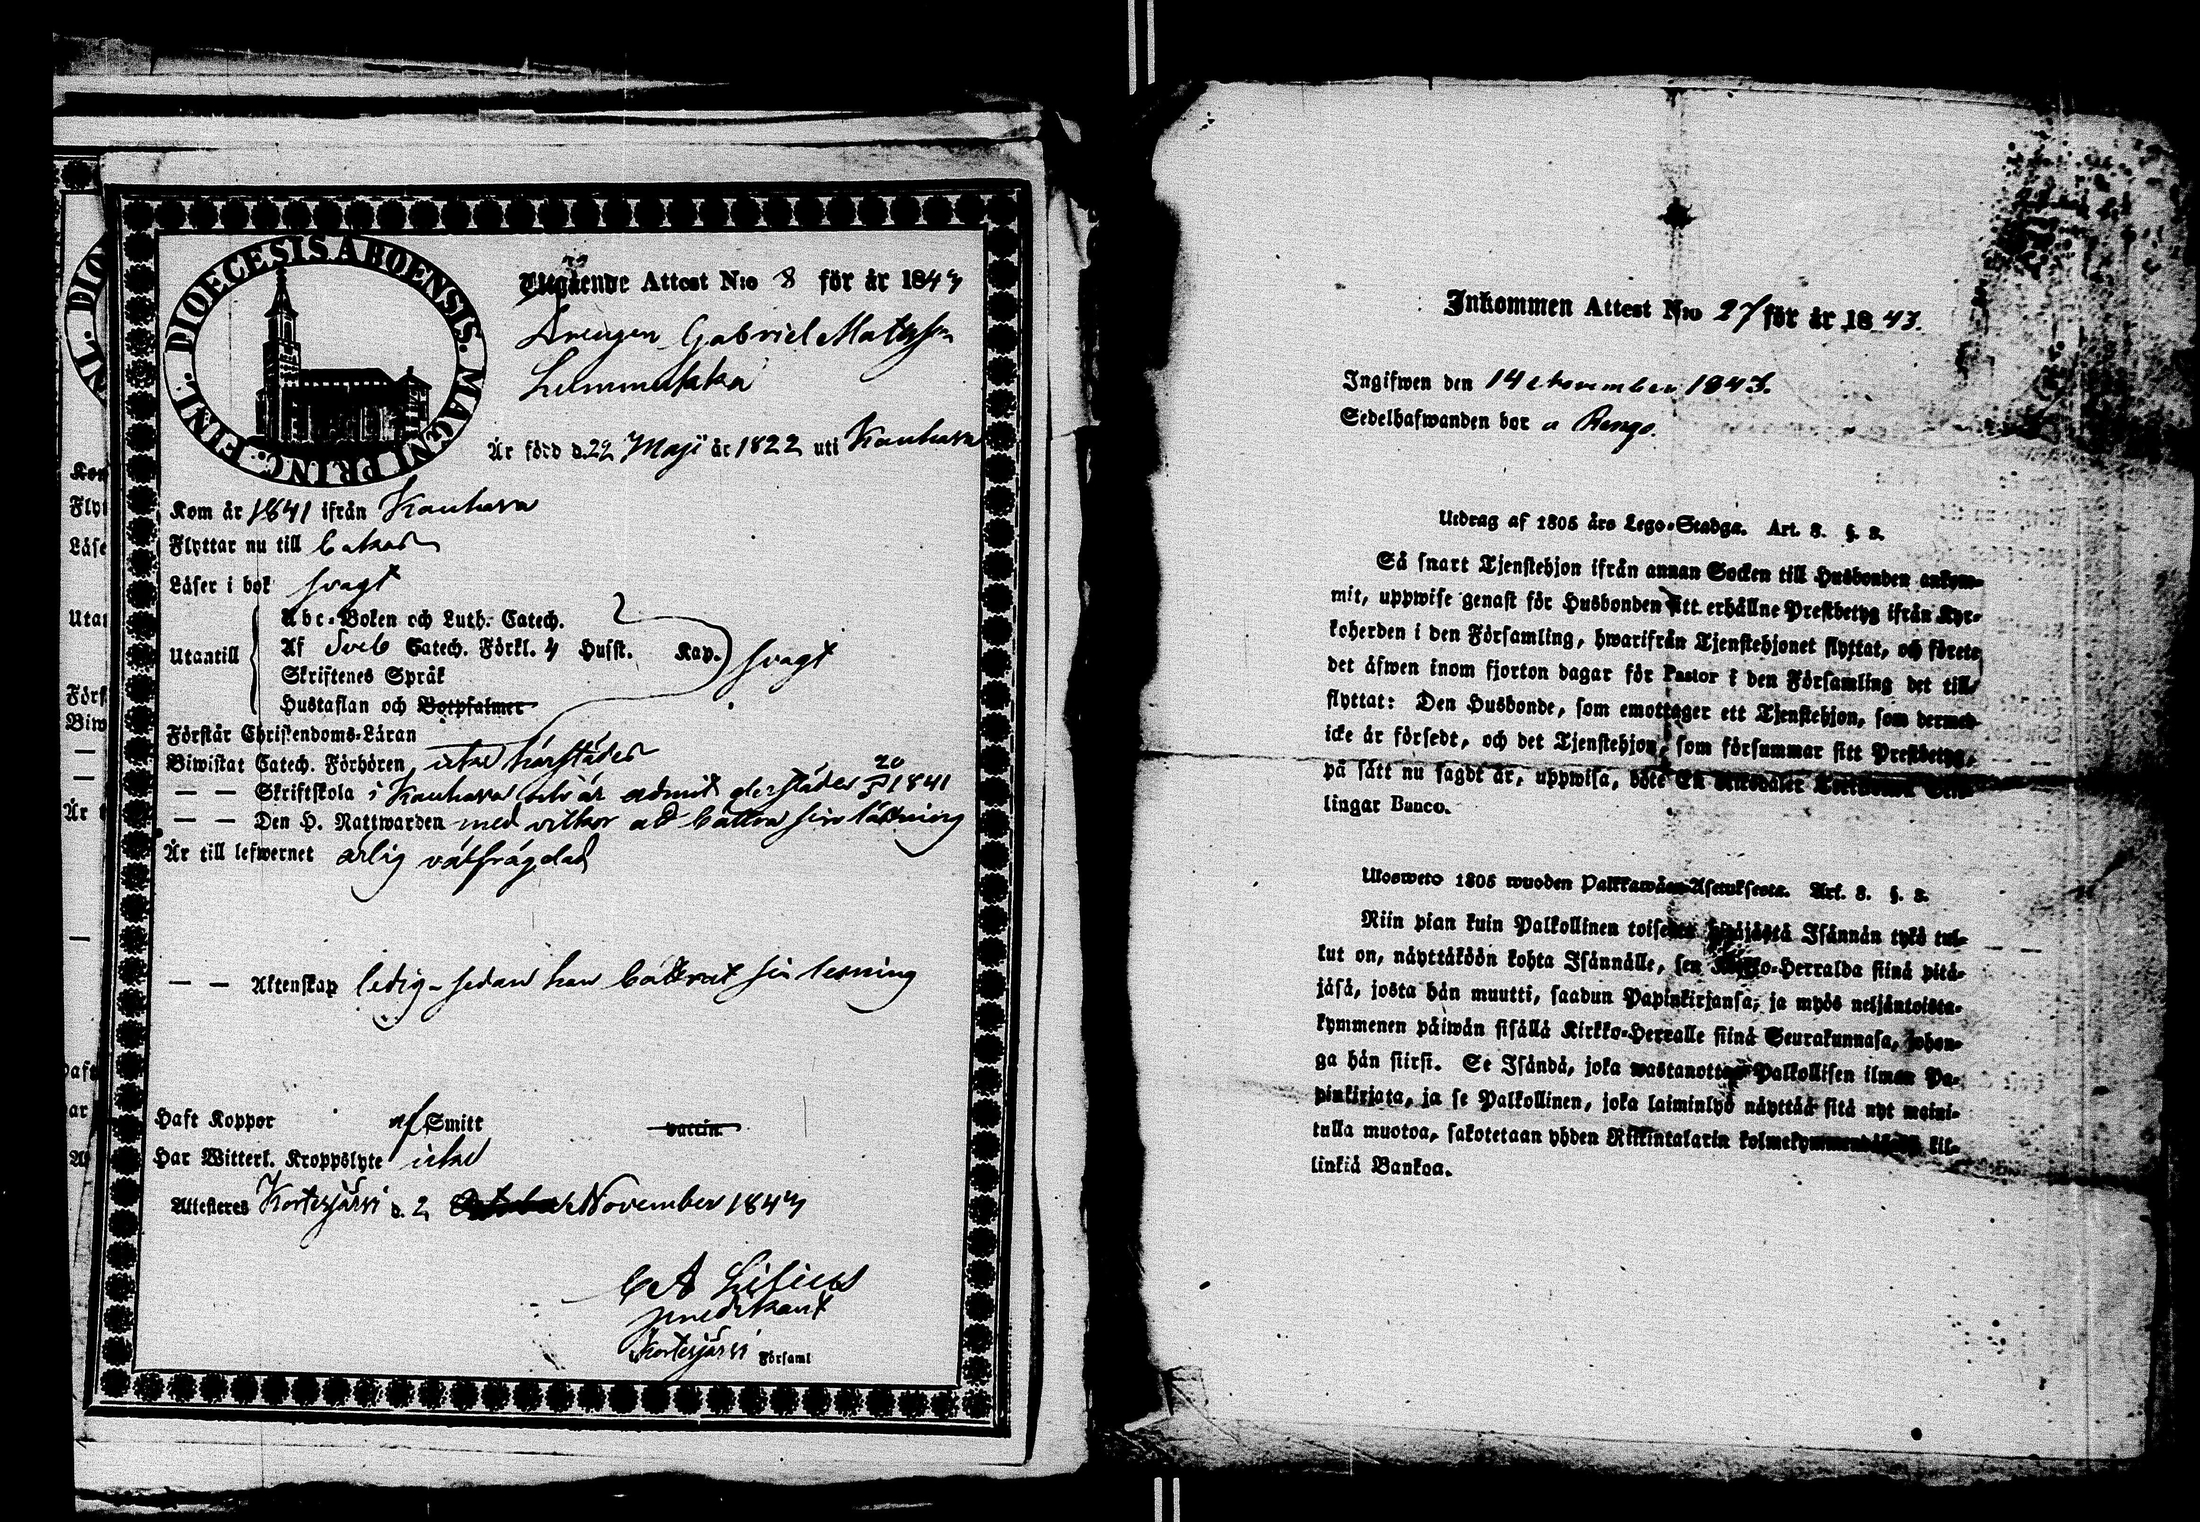 DIOECESIS ABOENSIS. MAGNI PRINC. FINL.
Utgående Attest N:o 8 för år 1843
Drengen Gabriel Matsson
Är född d. 22 Maji år 1822 uti Kauhava
Kom år 1841 ifrån Kauhava
Flyttar nu till
Läser i bok svagt
Abc-Boken och Luth. Catech.
Utantill Af Sveb Catech. Förkl. 4 Hufst. Kap. svagt
Skriftenes Språk
Hustaflan och Botpsalmer
Förstår Christendoms-Läran
Biwistat Catech. Förhören icke härstädes
— — Skriftskola i Kauhava och är admit. derstädes 1841
— — Den H. Nattwarden med vilkor at bättra sin läsning
Är till lefwernet ärlig välfrägdad
— — Äktenskap ledig - sedan han bättrat sin lesning
Haft Koppor af Smitt vaccin.
Har Witterl. Kroppslyte icke
Attesteras Kortesjärvi d. 2 November 1843
Predikant
Kortesjärvi Församl
Inkommen Attest N:o 27 för år 1843.
Ingifwen den 14 November 1843.
Sedelhafwanden bor å Rengo.
Utdrag af 1805 års Lego-Stadga. Art. 3. §. 3.
Så snart Tjenstehjon ifrån annan Socken till Husbonden ankom-
mit, uppwise genast för Husbonden sitt erhållne Prestbetyg ifrån Kyr-
koherden i den Församling, hwarifrån Tjenstehjonet flyttat, och förete
det äfwen inom fjorton dagar för Pastor i den Församling det till-
flyttat: Den Husbonde, som emottager ett Tjenstehjon, som dermed
icke är försedt, och det Tjenstehjon, som försummar sitt Prestbetyg,
på sätt nu sagdt är, uppwisa, böte En Riksdaler
lingar Banco.
Ulosweto 1805 wuoden Palkkawäen-Asetuksesta. Art. 3. §. 3.
Niin pian kuin Palkollinen toisesta pitäjästä Isännän tykö tul-
lut on, näyttäköön kohta Isännälle, sen Kirkko-Herralda siinä pitä-
jäsä, josta hän muutti, saadun Papinkirjansa, ja myös neljäntoista-
kymmenen päiwän sisällä Kirkko-Herralle siinä Seurakunnasa, johon-
ga hän siirsi. Se Isändä, joka wastanottaa Palkollisen ilman Pa-
pinkirjata, ja se Palkollinen, joka laiminlyö näyttää sitä nyt maini-
tulla muotoa, sakotetaan yhden Riikintalarin kil-
linkiä Bankoa.